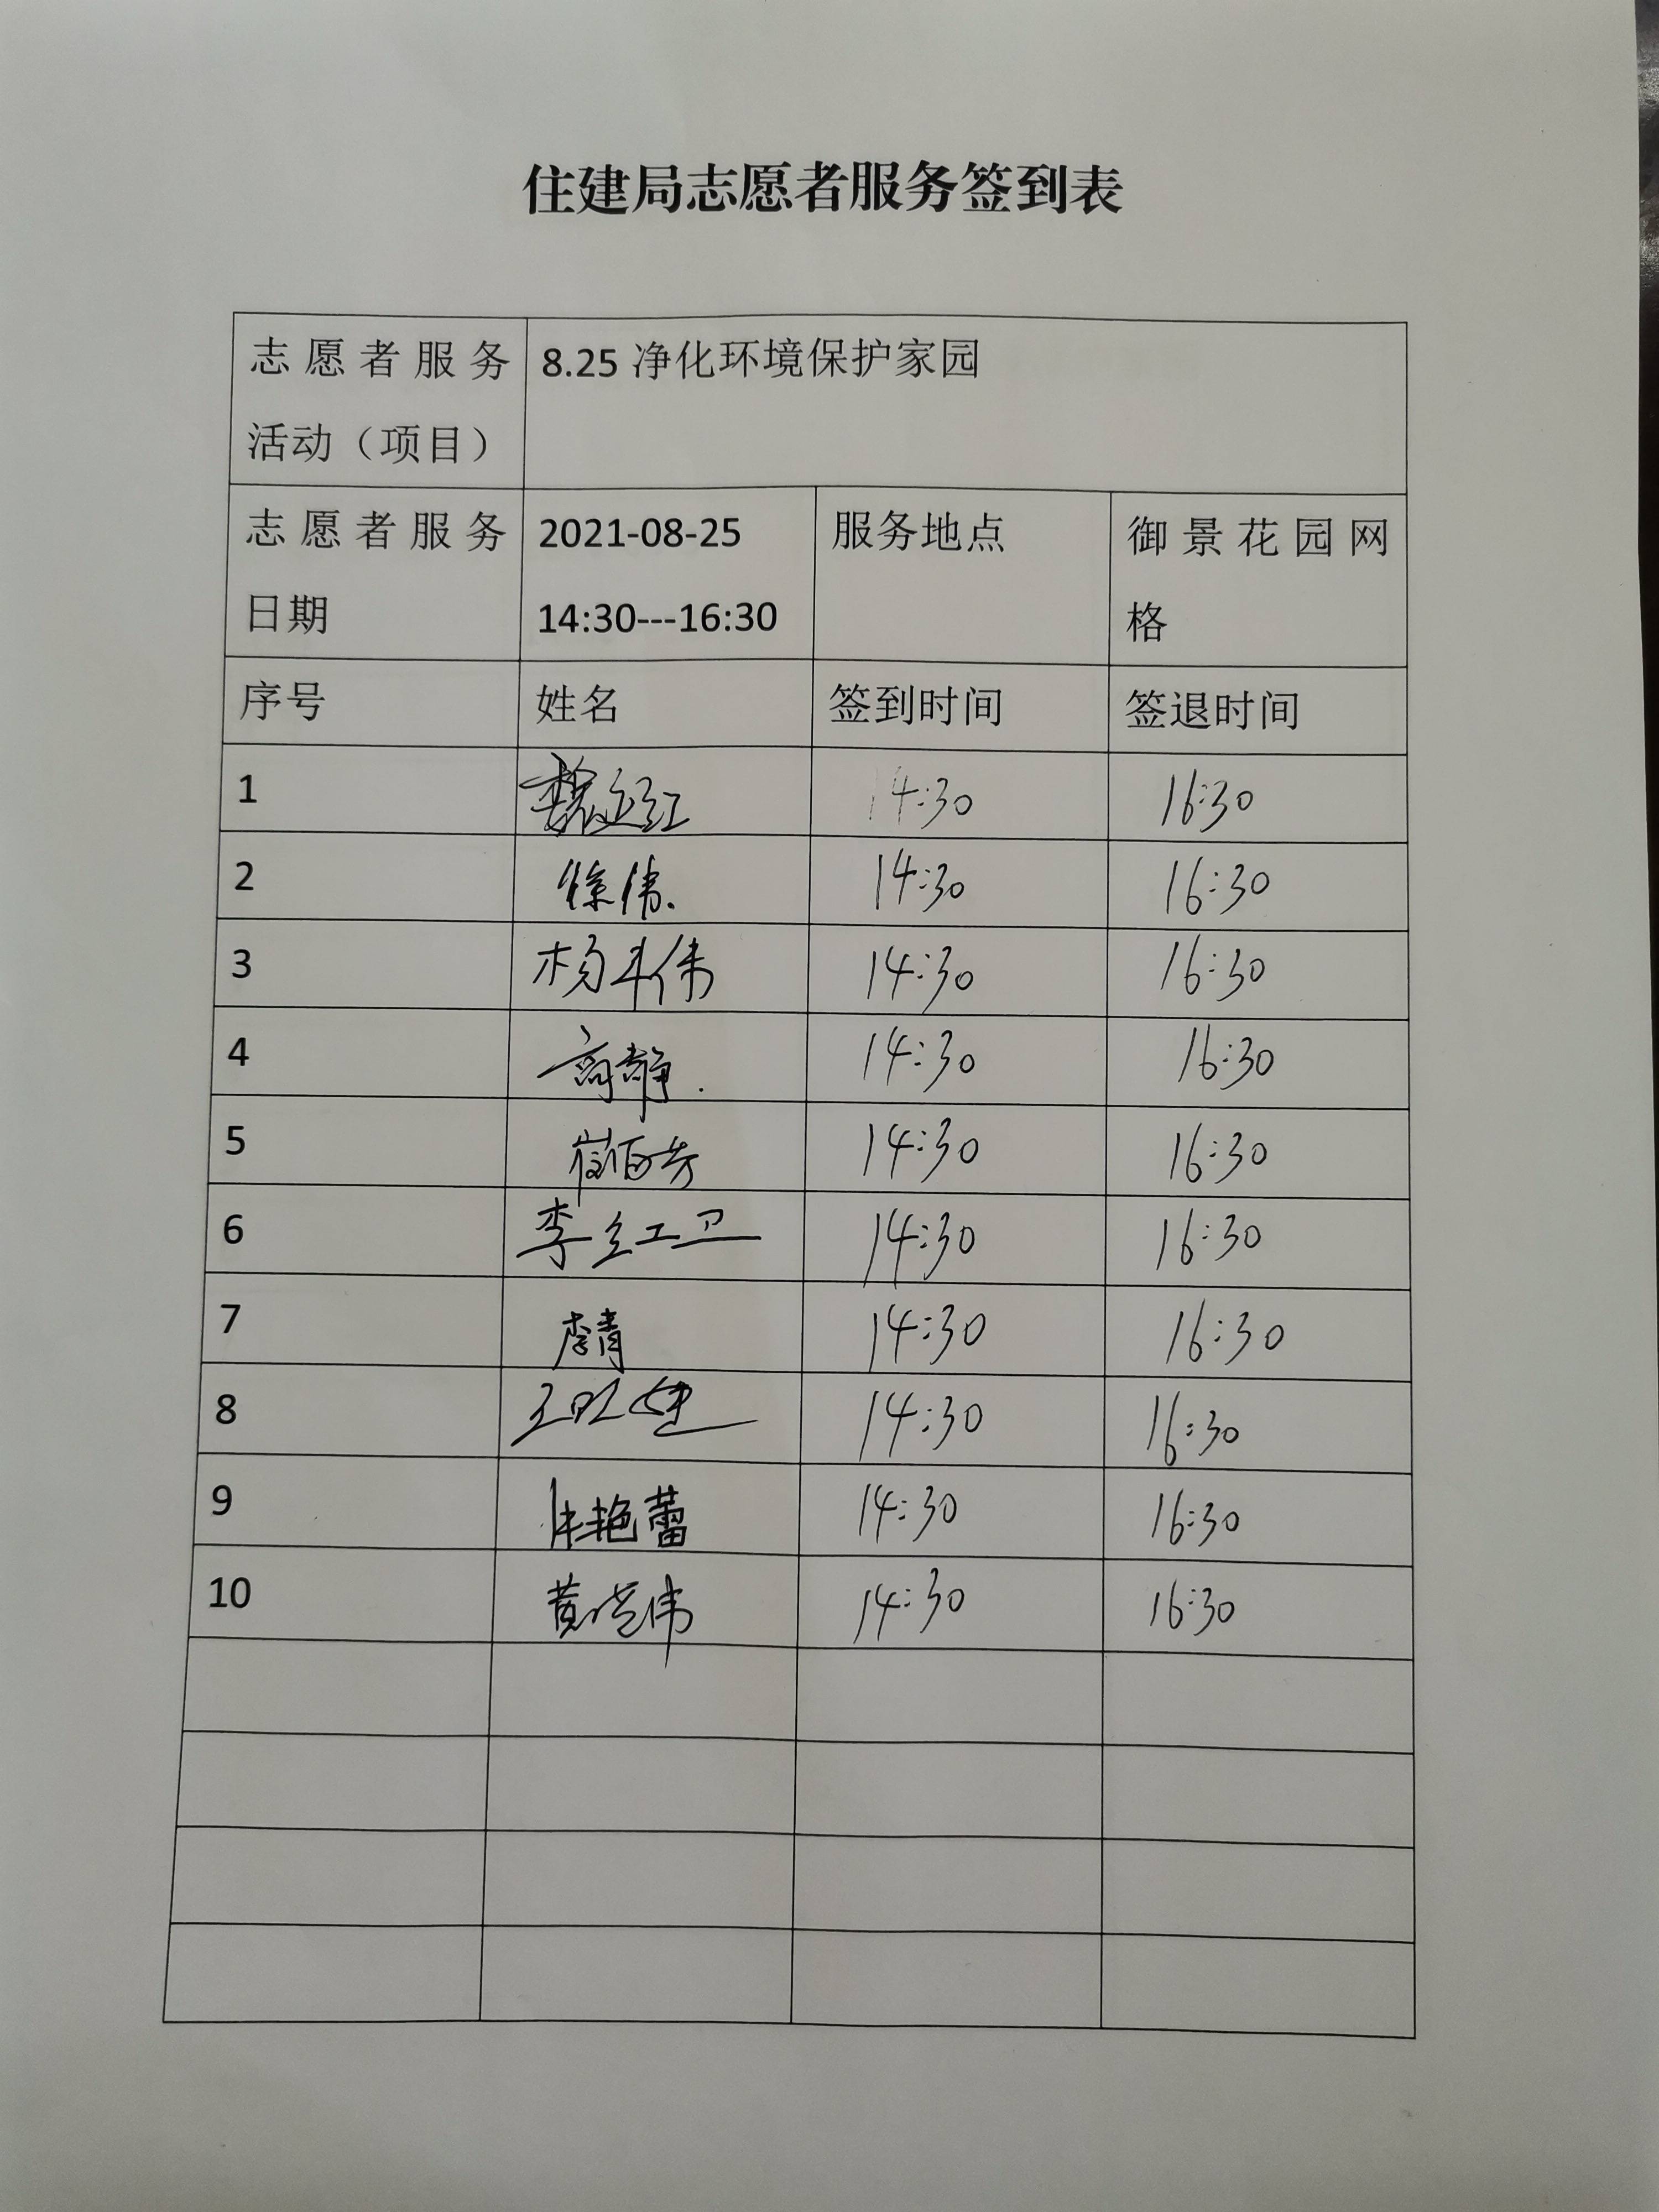 住建局志愿者服务签到表
志愿者服务 8.25 净化环境保护家园
活动（项目）
志愿者服务 2021-08-25 服务地点 御景花园网
日期 14:30---16:30 格
序号 姓名 签到时间 签退时间
1 14:30 16:30
2 徐伟. 14:30 16:30
3 杨斗伟 14:30 16:30
4 高静. 14:30 16:30
5 14:30 16:30
6 李红卫 14:30 16:30
7 李青 14:30 16:30
8 14:30 16:30
9 朱艳蕾 14:30 16:30
10 14:30 16:30